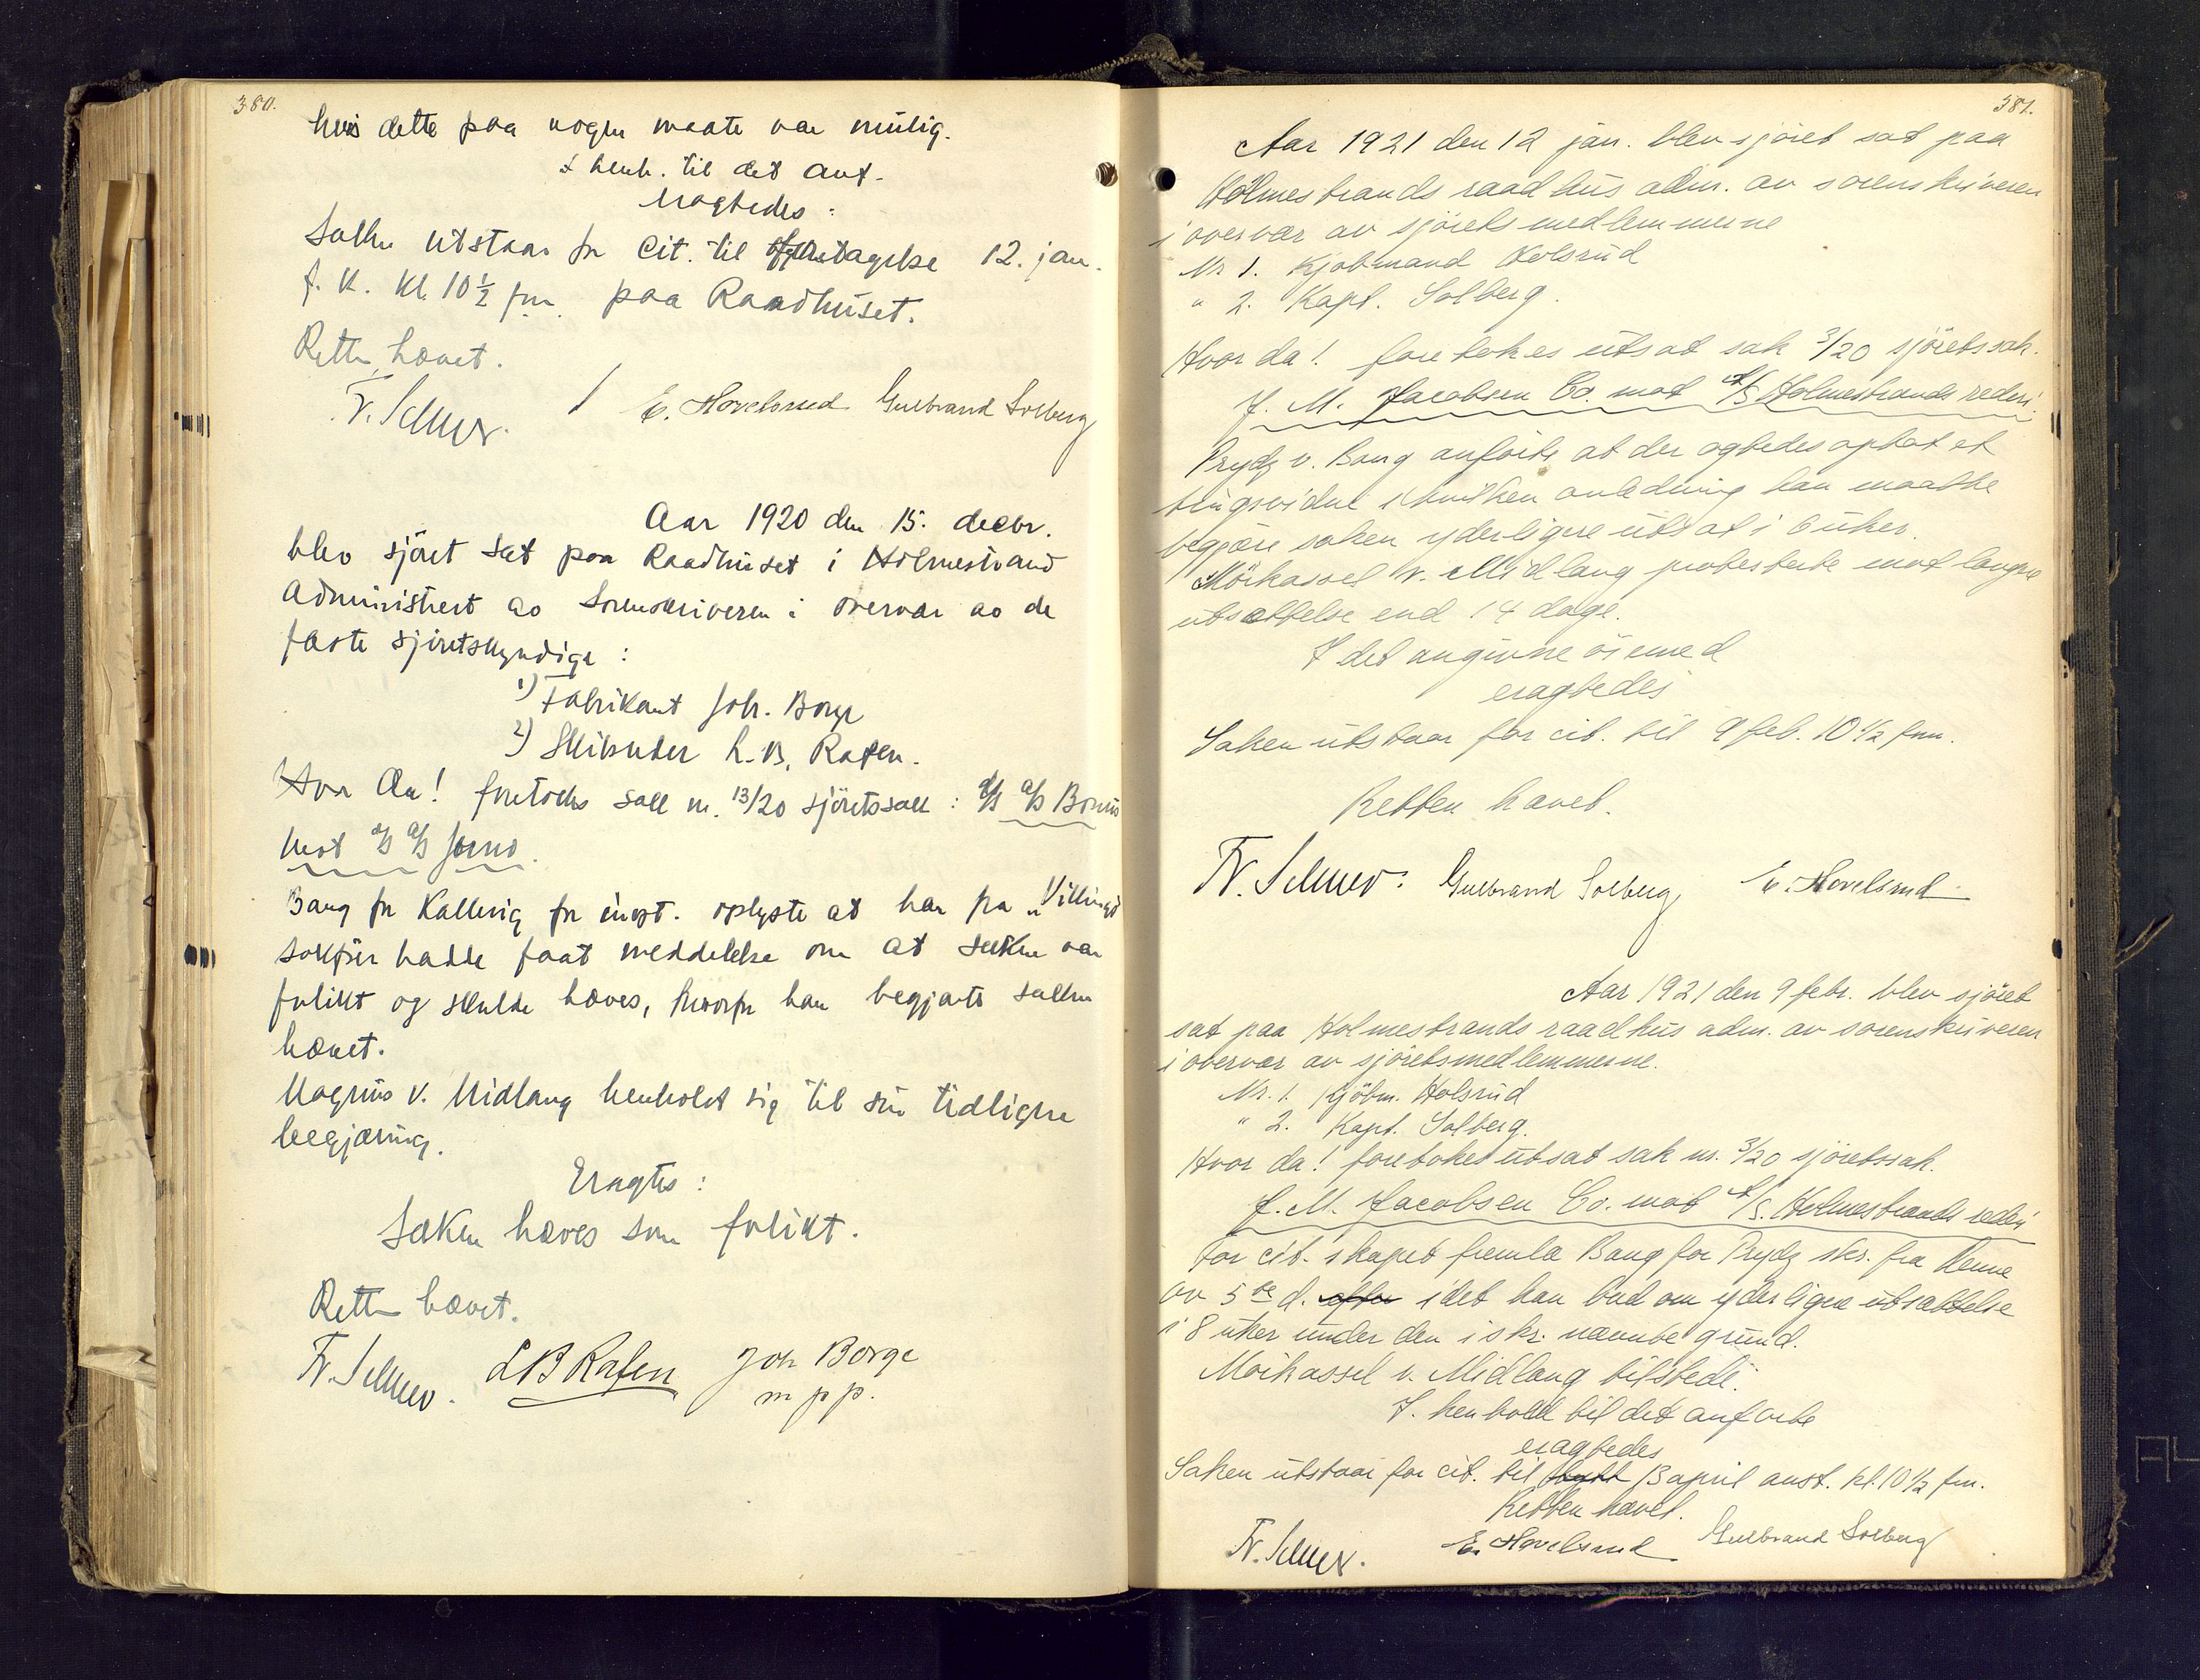 380.
hvis dette paa nogen maate var mulig.
I henh. til det anf.
eragtedes:
Saken utstaar for Cit. til foretagelse 12. jan.
f. k. kl. 10 1/2 fm. paa Raadhuset.
Retten hævet.
Fr. Selmer. / E. Hovelsrud Gulbrand Solberg
Aar 1920 den 15. decbr.
blev sjöret sat paa Raadhuset i Holmestrand
administrert av Sorenskriveren i overvær av de
faste sjöretskyndige:
1) Fabrikant Joh. Borge
2) Skibsreder L. B. Rafen.
Hvor da! foretokes sak nr. 13/20 sjöretssak: d/s a/s Bonus
mot d/s a/s
Bang for Kallevig for inost. oplyste at han fra
sakförer hadde faat meddelelse om at saken var
forlikt og skulde hæves, hvorfor han begjærte saken
hævet.
Magnus v. Midlang henholdt sig til sin tidligere
begjæring.
Eragtes:
Saken hæves som forlikt.
Retten hævet.
Fr. Selmer. L B Rafen Joh Borge
m p p.
381.
Aar 1921 den 12 jan. blev sjöret sat paa
Holmestrands raadhus adm. av sorenskriveren
i overvær av sjöretsmedlemmerne
Nr 1. Kjöbmand Holsrud
" 2. Kapt. Solberg.
Hvor da! foretokes utsat sak 3/20 sjöretssak.
J. M. Jacobsen Co. mot A/S Holmestrands rederi.
Prydz v. Bang anförte at der agtedes optat et
tingsvidne i hvilken anledning han maatte
begjære saken yderligere utsat i 6 uker.
Mörkassel v. Midlang protesterte mot længre
utsættelse end 14 dage.
I det angivne öiemed
eragtedes
Saken utstaar for cit. til 9 feb. 10 1/2 fm.
Retten hævet.
Fr. Selmer. Gulbrand Solberg E. Hovelsrud
Aar 1921 den 9 febr. blev sjöret
sat paa Holmestrands raadhus adm. av sorenskriveren
i overvær av sjöretsmedlemmerne.
Nr. 1. Kjöbm. Holsrud
" 2. Kapt. Solberg.
Hvor da! foretokes utsat sak nr. 3/20 sjöretssak.
J. M. Jacobsen Co. mot A/S. Holmestrands rederi
For cit. skapet fremla Bang for Prydz skr. fra denne
av 5te d. efter idet han bad om yderligere utsættelse
i 8 uker under den i skr. nævnte grund.
Mörkassel v. Midlang tilstede.
I. henhold til det anförte
eragtedes
Saken utstaar for cit. til 13 april anst. kl. 10 1/2 fm.
Retten hævet.
Fr. Selmer. E. Hovelsrud Gulbrand Solberg